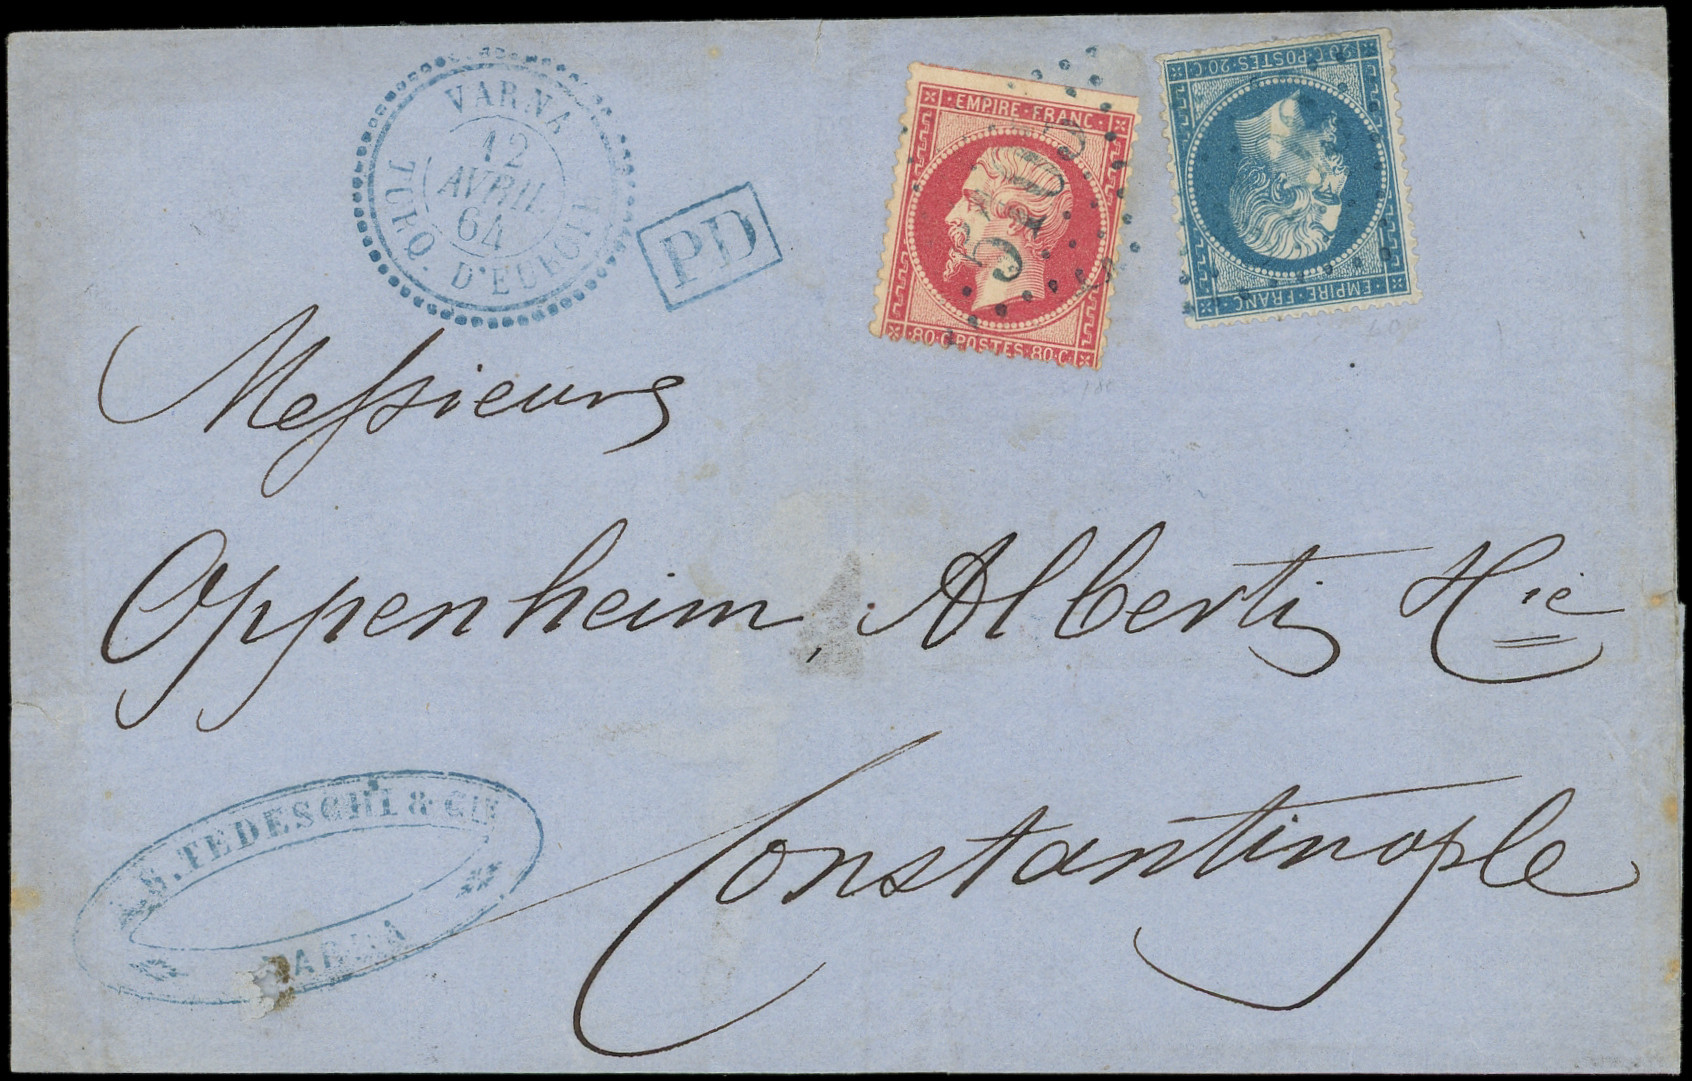 VARNA
12
AVRIL
64
TURQ. D'EUROPE
PD
EMPIRE·FRANC·
80·C·POSTES·80·C·
5103
20·C·POSTES·20·C·
EMPIRE·FRANC·
Messieurs
Oppenheim, Alberti & Cie
Constantinople
S. TEDESCHI & CIE
VARNA